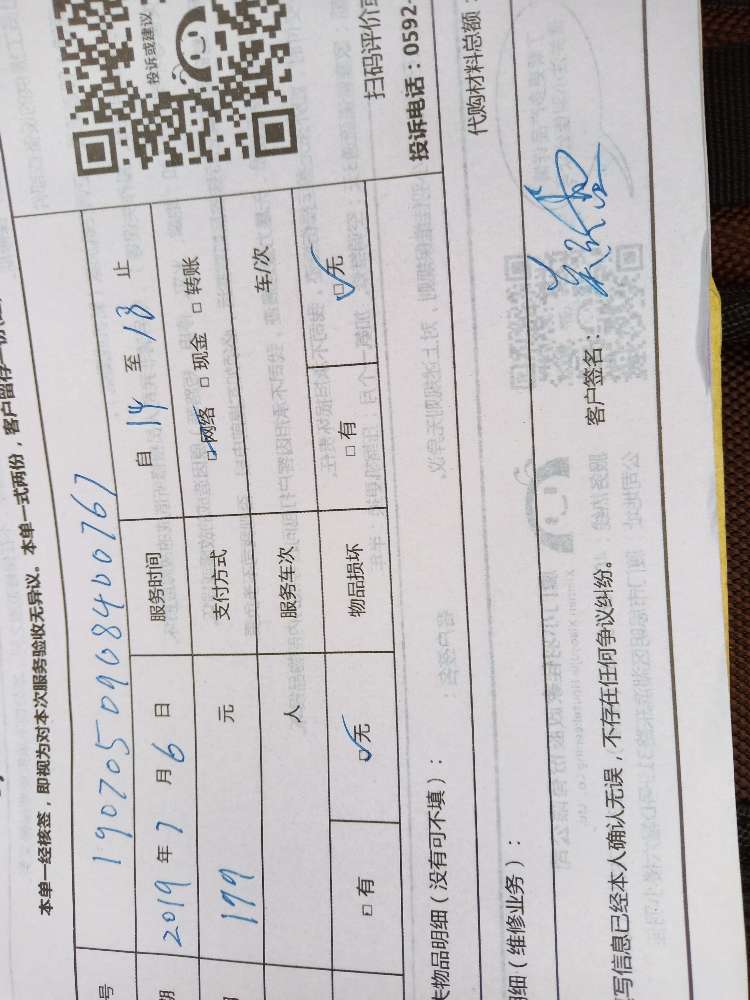 本单一经核签，即视为对本次服务验收无异议。本单一式两份，客户留存一份
号 190705090908400767
期 2019 年 7 月 6 日 服务时间 自 14 至 18 止
199 元 支付方式 ☑网络 □现金 □转账
人 服务车次 车/次
□有 ☑无 物品损坏 □有 ☑无
投诉或建议
扫码评价或
投诉电话：0592-
失物品明细（没有可不填）：
代购材料总额：
细（维修业务）：
写信息已经本人确认无误，不存在任何争议纠纷。 客户签名：